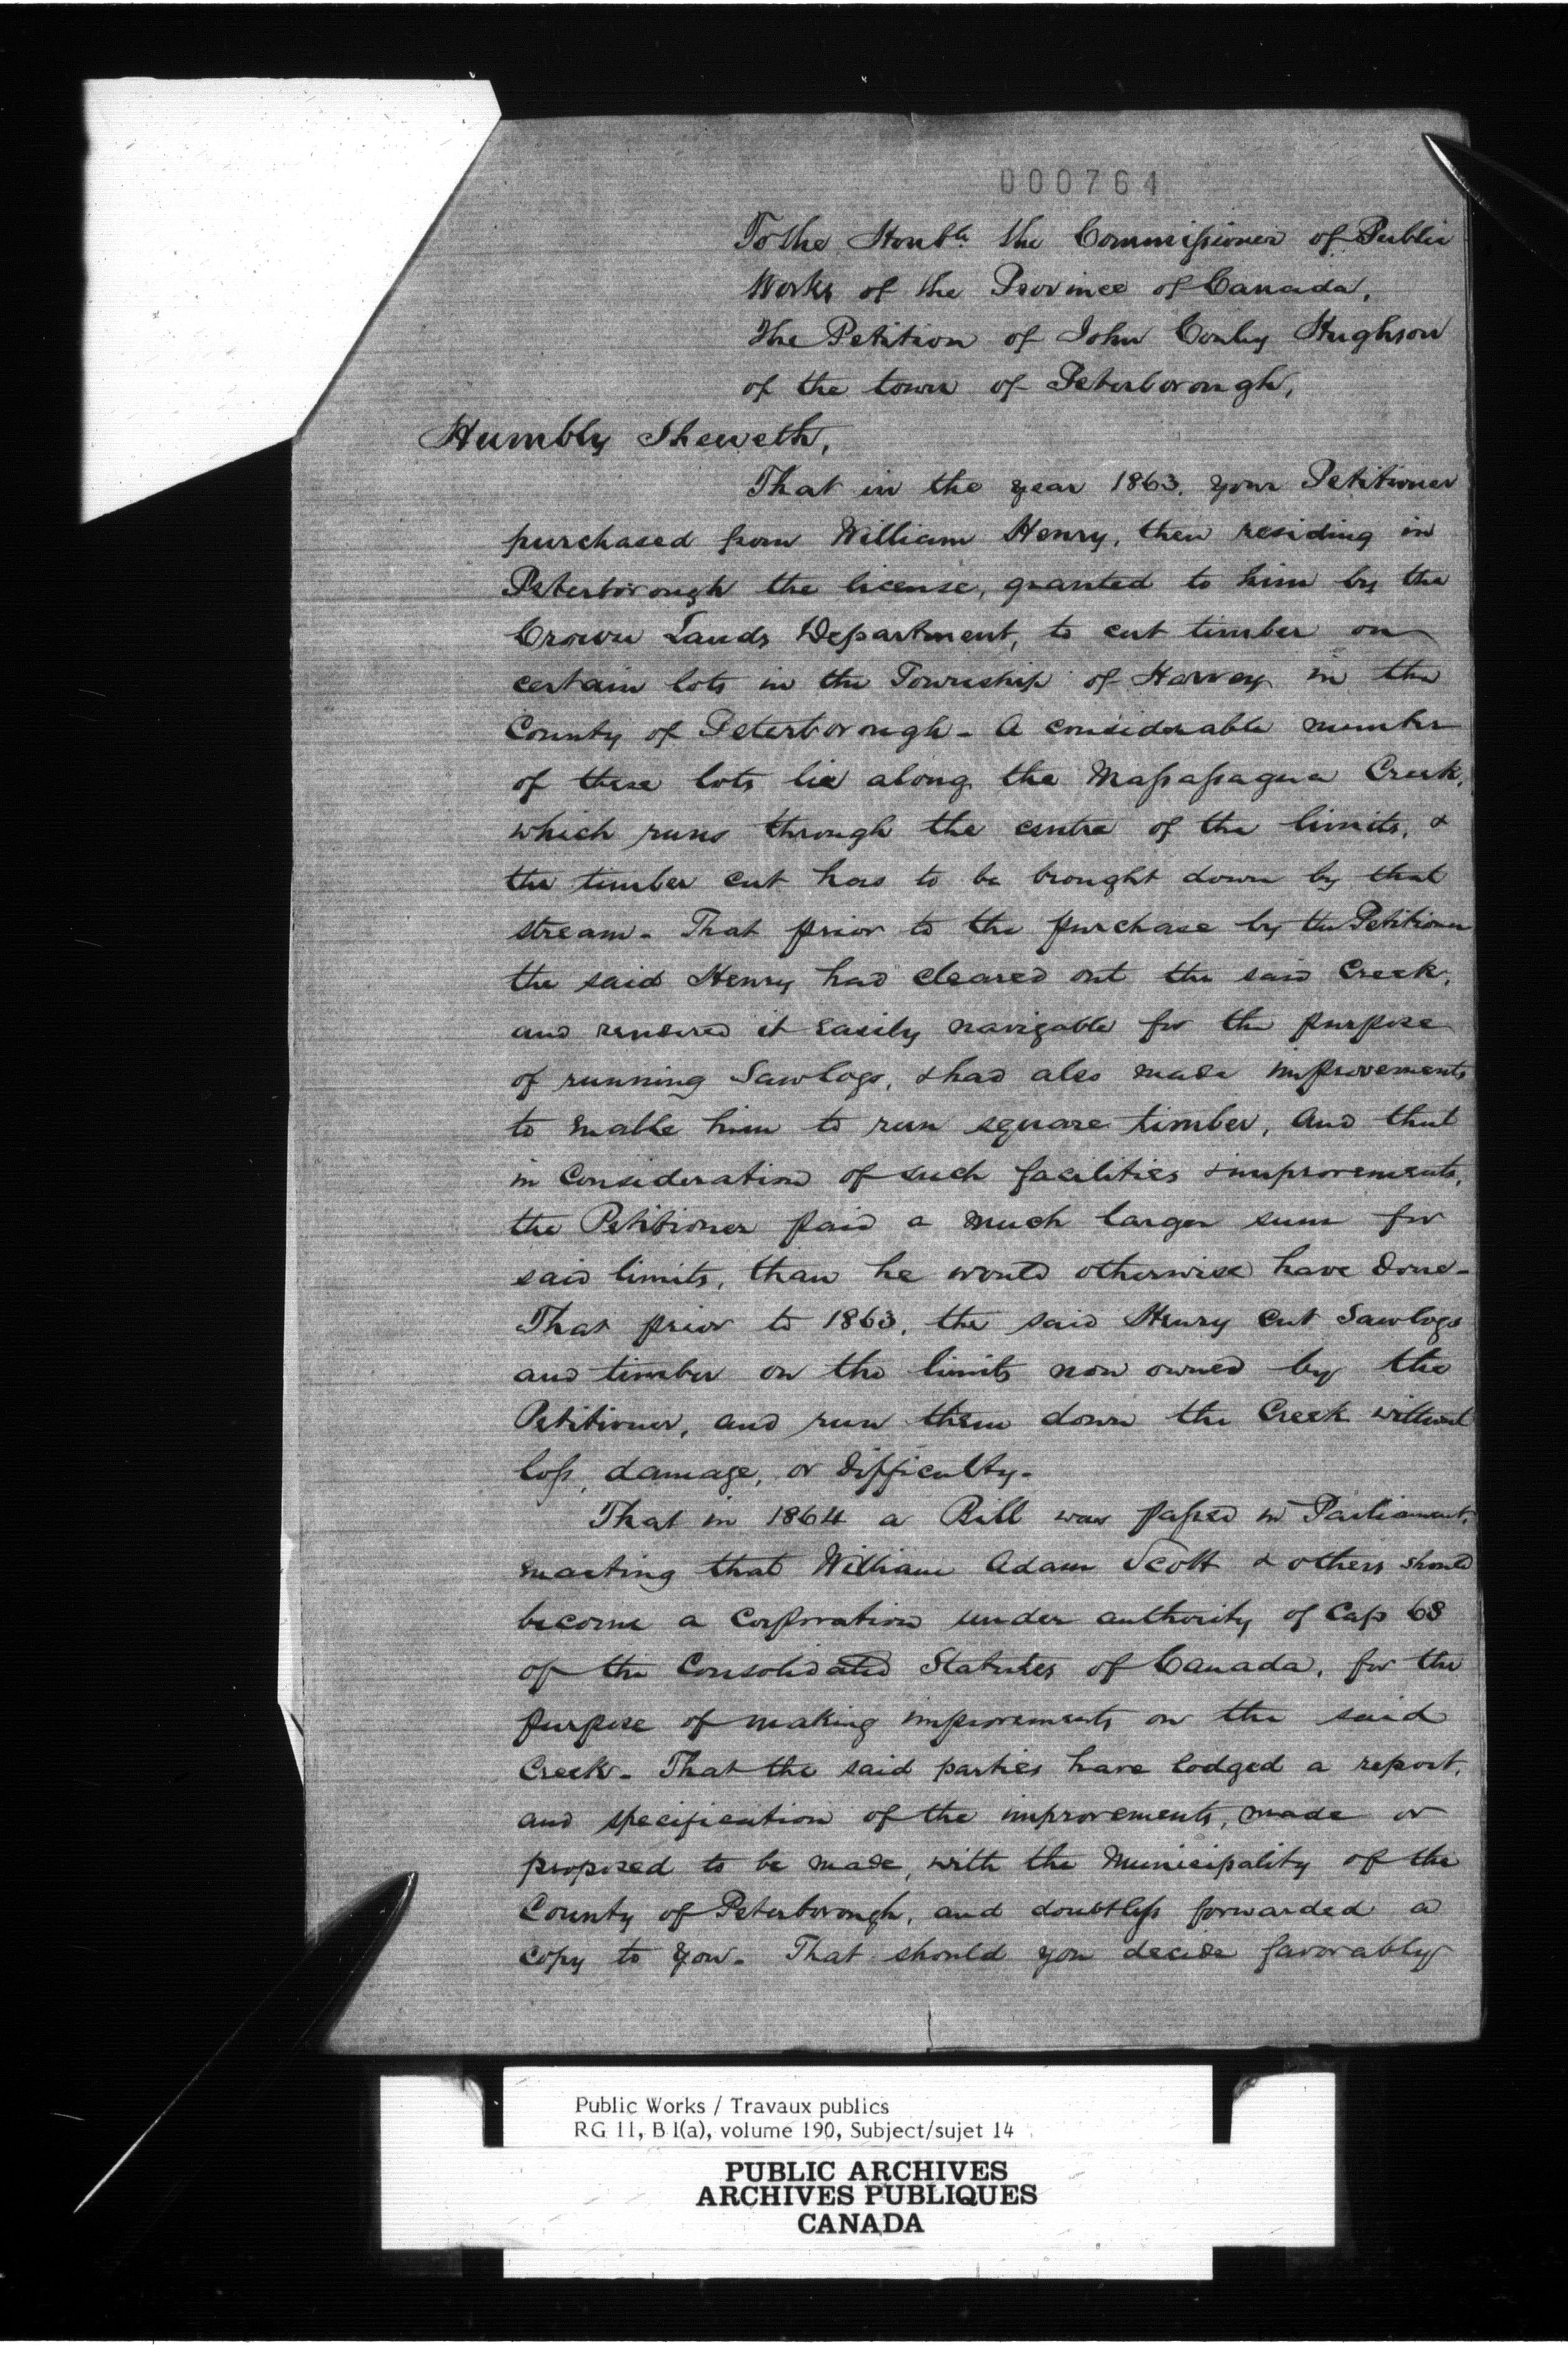 000764
To the Honble the Commissioner of Public
Works of the Province of Canada,
The Petition of John Conley Hughson
of the town of Peterborough,
Humbly Sheweth,
That in the year 1863, your Petitioner
purchased from William Henry, then residing in
Peterborough the license, granted to him by the
Crown Lands Department, to cut timber on
certain lots in the Township of Harvey in the
County of Peterborough - A considerable number
of these lots lie along the Massassagua Creek,
which runs through the centre of the limits, &
the timber cut has to be brought down by that
stream - That prior to the purchase by the Petitioner
the said Henry had cleared out the said Creek,
and rendered it easily navigable for the purpose
of running Sawlogs, & had also made improvements
to enable him to run square timber, and that
in Consideration of such facilities & improvements,
the Petitioner paid a much larger sum for
said limits, than he would otherwise have done -
That prior to 1863, the said Henry cut Sawlogs
and timber on the limits now owned by the
Petitioner, and run them down the Creek without
loss, damage, or difficulty -
That in 1864 a Bill was passed in Parliament,
enacting that William Adam Scott & others should
become a Corporation under authority of Cap 68
of the Consolidated Statutes of Canada, for the
purpose of making improvements on the said
Creek - That the said parties have lodged a report,
and specification of the improvements, made or
proposed to be made, with the Municipality of the
County of Peterborough, and doubtless forwarded a
copy to you - That should you decide favorably
Public Works / Travaux publics
RG 11, B 1(a), volume 190, Subject/sujet 14
PUBLIC ARCHIVES
ARCHIVES PUBLIQUES
CANADA